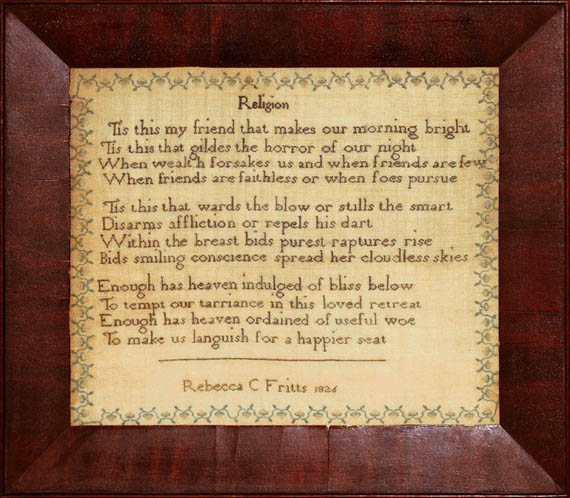 Religion
Tis this my friend that makes our morning bright
Tis this that gildes the horror of our night
When wealth forsakes us and when friends are few
When friends are faithless or when foes pursue
Tis this that wards the blow or stills the smart
Disarms affliction or repels his dart
Within the breast bids purest raptures rise
Bids smiling conscience spread her cloudless skies
Enough has heaven indulged of bliss below
To tempt our tarriance in this loved retreat
Enough has heaven ordained of useful woe
To make us languish for a happier seat
Rebecca C Fritts 1826